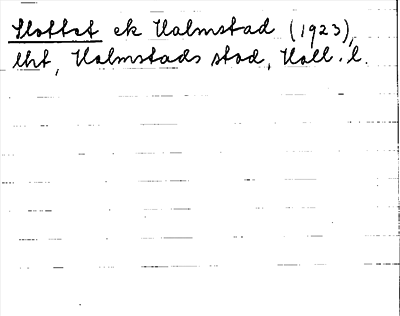 Slottet ek Halmstad (1923),
lht, Halmstads stad, Hall. l.